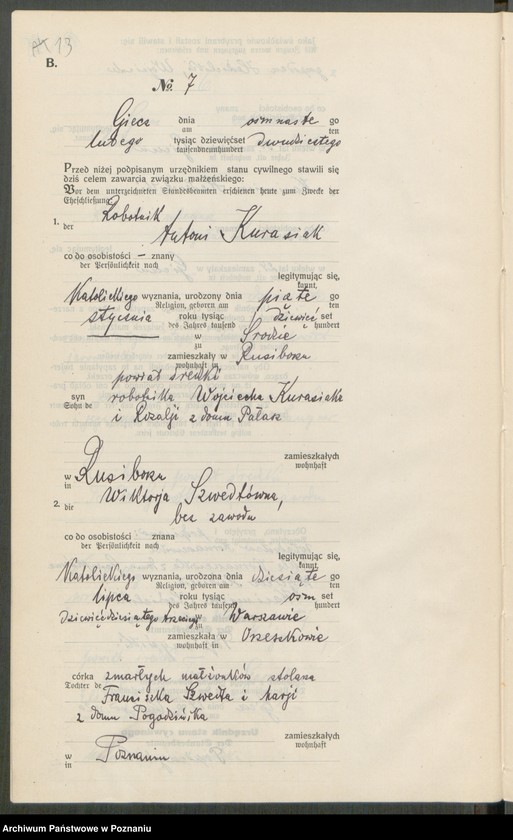 13
B.
No. 7
Giecz dnia osmnaste go
am ten
lutego tysiąc dziewięćset dwudziestego
tausendneunhundert
Przed niżej podpisanym urzędnikiem stanu cywilnego stawili się
dziś celem zawarcia związku małżeńskiego:
Vor dem unterzeichneten Standesbeamten erschienen heute zum Zweck der
Eheschließung
1. Robotnik
der Antoni Kurasiak
co do osobistości – znany
der Persönlichkeit nach
legitymując się,
kannt,
Katolickiego wyznania, urodzony dnia piąte go
Religion, geboren am ten
stycznia roku tysiąc dziewięć set
des Jahres tausend hundert
w Środzie
zu
zamieszkały w Rusiborzu
wohnhaft in
powiat średzki
syn robotnika Wojciecha Kurasiaka
Sohn de
i Rozalji z domu Pałasz
zamieszkałych
wohnhaft
w Rusiborzu
in
2. Wiktorja Szwedtówna,
die
bez zawodu
co do osobistości znana
der Persönlichkeit nach
legitymując się,
kannt,
Katolickiego wyznania, urodzona dnia dziesiąte go
Religion, geboren am ten
lipca roku tysiąc ośm set
des Jahres tausend hundert
dziewięćdziesiątego trzeciego w Warszawie
zu
zamieszkała w Orzeszkowie
wohnhaft in
córka zmarłych małżonków stolarza
Tochter de
Franciszka Szwedta i Marji
z domu Pogodzińska
zamieszkałych
wohnhaft
w Poznaniu
in
Archiwum Państwowe w Poznaniu